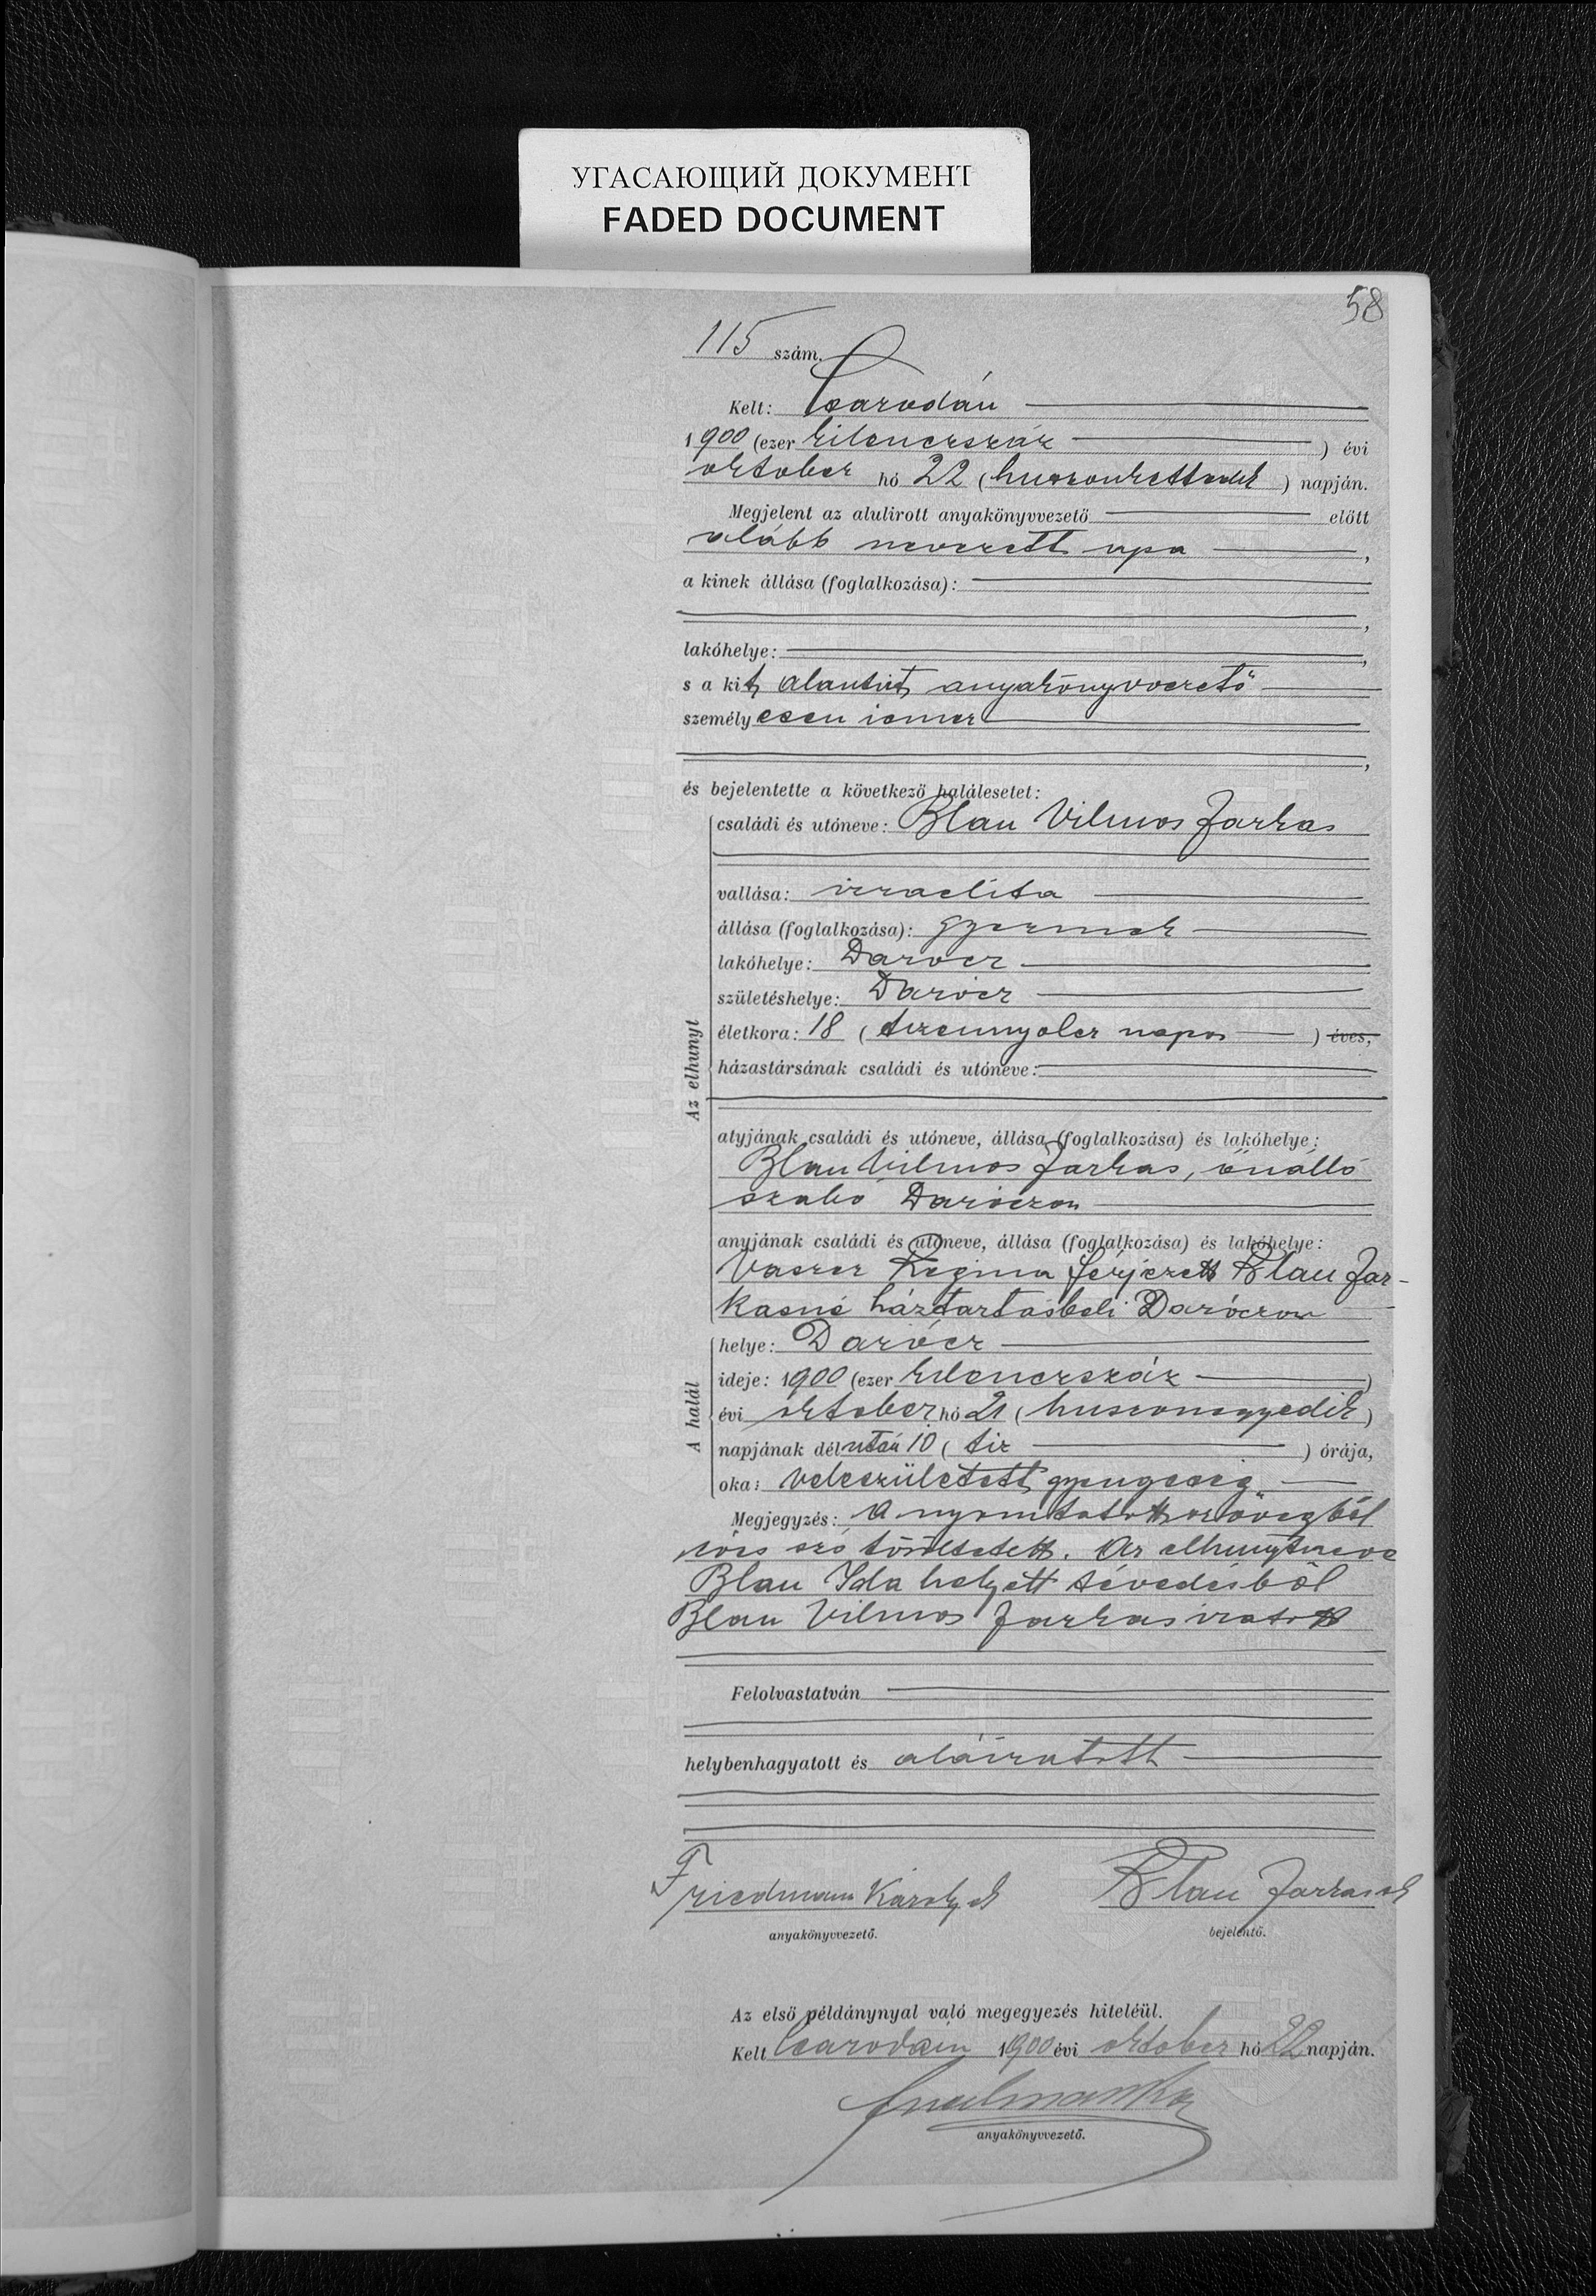 УГАСАЮЩИЙ ДОКУМЕНТ
FADED DOCUMENT
58
115 szám.
Kelt: Csarodán
1900 (ezer kilencszáz) évi
oktober hó 22 (huszonkettedik) napján.
Megjelent az alulirott anyakönyvvezető előtt
alább nevezett apa,
a kinek állása (foglalkozása):
lakóhelye:
s a kit alantirt anyakönyvvezető
személyesen ismer
és bejelentette a következő halálesetet:
Az elhunyt
családi és utóneve: Blau Vilmos Farkas
vallása: izraelita
állása (foglalkozása): gyermek
lakóhelye: Darócz
születéshelye: Darócz
életkora: 18 (tizennyolcz napos) éves,
házastársának családi és utóneve:
atyjának családi és utóneve, állása (foglalkozása) és lakóhelye:
Blau Vilmos Farkas, önálló
szabó Daróczon
anyjának családi és utóneve, állása (foglalkozása) és lakóhelye:
Vaszer Regina férjezett Blau Far-
kasné háztartásbeli Daróczon
A halál
helye: Darócz
ideje: 1900 (ezer kilenczszáz)
évi oktober hó 21 (huszonegyedik)
napjának délután 10 (tiz) órája,
oka: veleszületett gyengeség
Megjegyzés: A nyomtatott szövegből
szó töröltetett. Az elhunyt neve
Blau Ida helyett tévedésből
Blau Vilmos Farkas iratott
Felolvastatván
helybenhagyatott és aláiratott
Friedmann Károly sk
Blau Farkas sk
anyakönyvvezető.
bejelentő.
Az első példánynyal való megegyezés hiteléül.
Kelt Csarodán 1900 évi oktober hó 22 napján.
anyakönyvvezető.